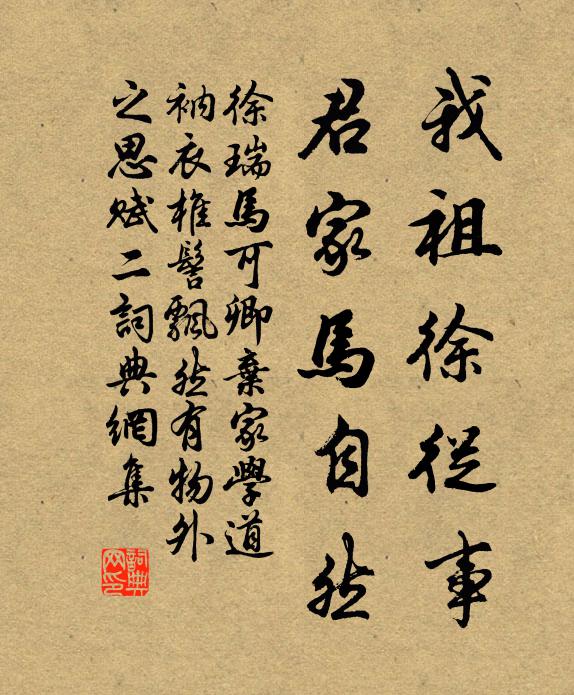 我祖徐從事
君家馬自然
徐瑞馬可卿棄家學道
衲衣椎髻飄然有物外
之思賦二詞典網集
詞典網印